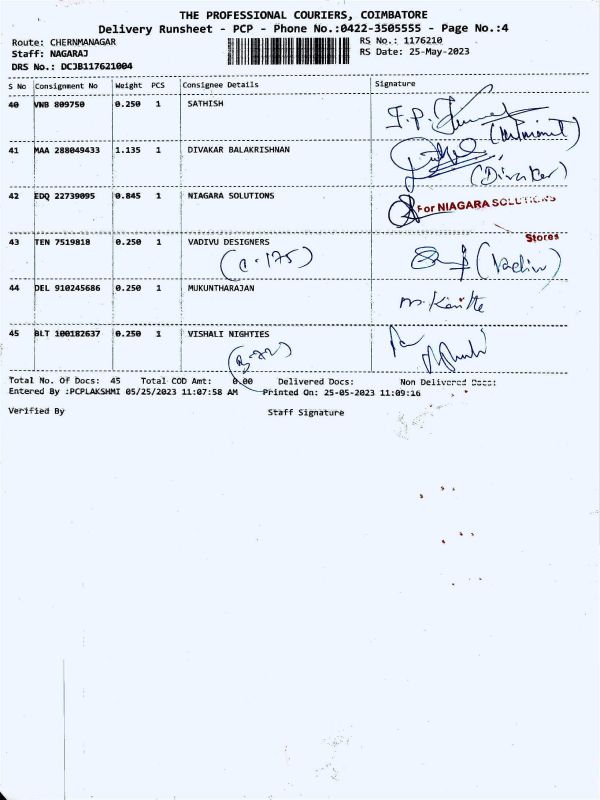 THE PROFESSIONAL COURIERS, COIMBATORE
Delivery Runsheet - PCP - Phone No.:0422-3505555 - Page No.:4
Route: CHERNMANAGAR RS No.: 1176210
Staff: NAGARAJ RS Date: 25-May-2023
DRS No.: DCJB117621004
S No Consignment No Weight PCS Consignee Details Signature
40 VNB 809750 0.250 1 SATHISH
41 MAA 288049433 1.135 1 DIVAKAR BALAKRISHNAN
(Divakar)
42 EDQ 22739095 0.845 1 NIAGARA SOLUTIONS
For NIAGARA SOLUTIONS
Stores
43 TEN 7519818 0.250 1 VADIVU DESIGNERS
44 DEL 910245686 0.250 1 MUKUNTHARAJAN
45 BLT 100182637 0.250 1 VISHALI NIGHTIES
Total No. Of Docs: 45 Total COD Amt: 0.00 Delivered Docs: Non Delivered Docs:
Entered By :PCPLAKSHMI 05/25/2023 11:07:58 AM Printed On: 25-05-2023 11:09:16
Verified By Staff Signature